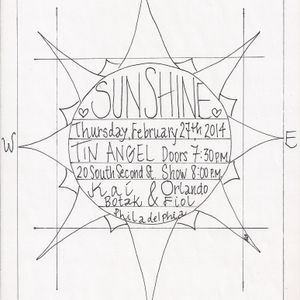 SUNSHINE
Thursday, February 27th 2014
TIN ANGEL Doors 7:30 P.M.
20 South Second St. Show 8:00 P.M.
Kai & Orlando
Botak & Fiol
Philadelphia
W
E